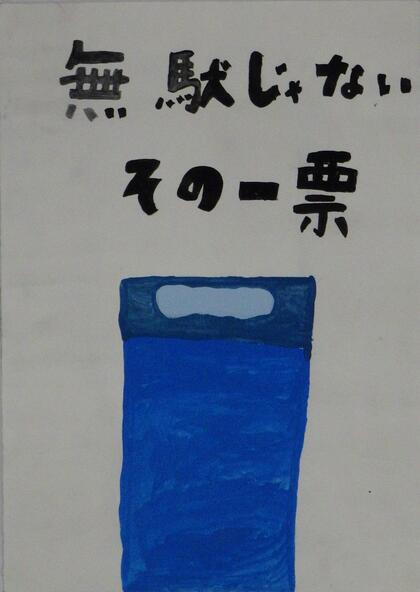 無駄じゃない
その一票